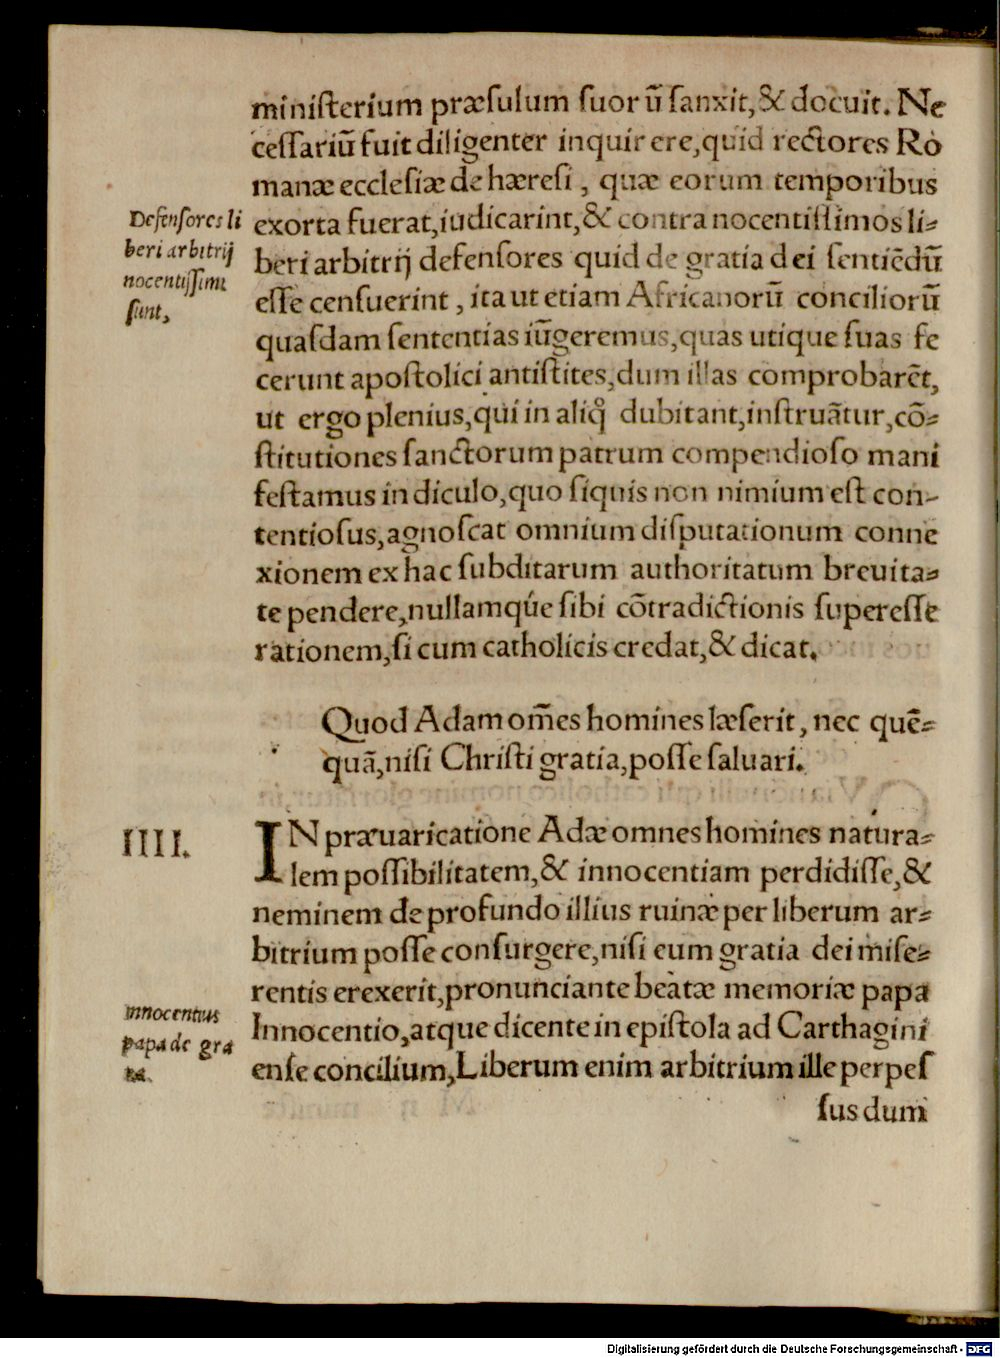 miniſterium præſulum ſuorū ſanxit, & docuit. Ne
ceſſariū fuit diligenter inquirere, quid rectores Ro
manæ eccleſiæ de hæreſi, quæ eorum temporibus
exorta fuerat, iudicarint, & contra nocentiſſimos li-
beri arbitrij defenſores quid de gratia dei ſentiēdū
eſſe cenſuerint, ita ut etiam Africanorū conciliorū
quaſdam ſententias iūgeremus, quas utique ſuas fe
cerunt apoſtolici antiſtites, dum illas comprobarēt,
ut ergo plenius, qui in aliq̊ dubitant, inſtruātur, cō-
ſtitutiones ſanctorum patrum compendioſo mani
feſtamus indiculo, quo ſiquis non nimium eſt con-
tentioſus, agnoſcat omnium diſputationum conne
xionem ex hac ſubditarum authoritatum breuita-
te pendere, nullamqúe ſibi cōtradictionis ſupereſſe
rationem, ſi cum catholicis credat, & dicat.
Defenſores li
beri arbitrij
nocentiſſimi
ſunt,
Quod Adam om̄es homines læſerit, nec quē-
quā, niſi Chriſti gratia, poſſe ſaluari.
IIII.
IN præuaricatione Adæ omnes homines natura-
lem poſſibilitatem, & innocentiam perdidiſſe, &
neminem de profundo illius ruinæ per liberum ar-
bitrium poſſe conſurgere, niſi eum gratia dei miſe-
rentis erexerit, pronunciante beatæ memoriæ papa
Innocentio, atque dicente in epiſtola ad Carthagini
enſe concilium, Liberum enim arbitrium ille perpeſ
ſus dum
Innocentius
papa de gra
tia.
Digitalisierung gefördert durch die Deutsche Forschungsgemeinschaft - DFG